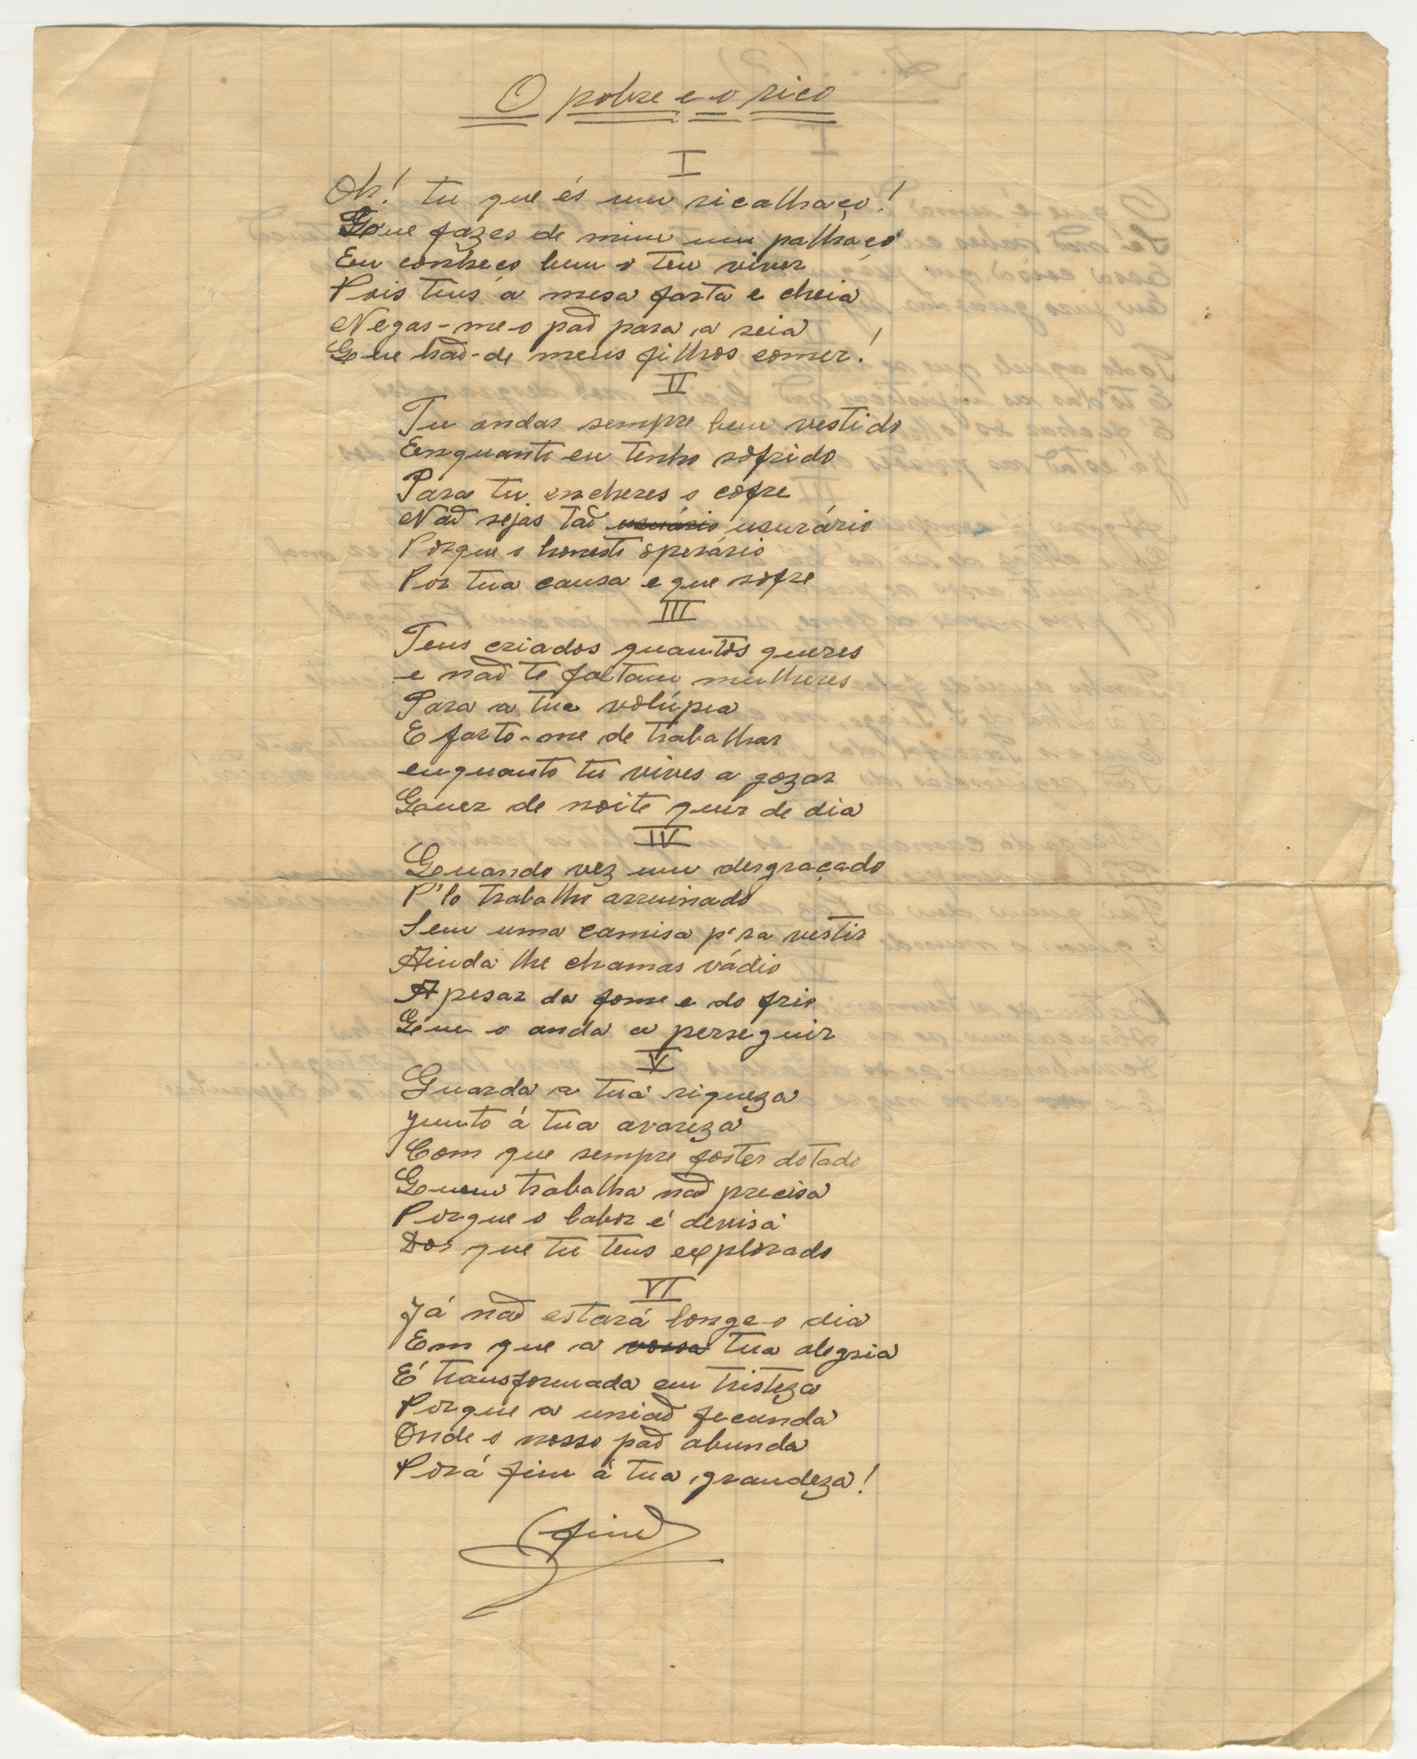 O pobre e o rico
I
Oh! tu que és um ricalhaço!
Que fazes de mim um palhaço
Eu conheço bem o teu viver
Pois tens a mesa farta e cheia
Negas-me o pão para a seia
Que hão-de meus filhos comer!
II
Tu andas sempre bem vestido
Enquanto eu tenho sofrido
Para tu encheres o cofre
Não sejas tão usurário usurário
Porque o honesto operário
Por tua causa e que sofre
III
Tens criados quantos queres
e não te faltam mulheres
Para a tua volúpia
E farto-me de trabalhar
enquanto tu vives a gozar
Quer de noite quer de dia
IV
Quando vez um desgraçado
P'lo trabalho arruinado
Sem uma camisa p'ra vestir
Ainda lhe chamas vádio
Apesar da fome e do frio
Que o anda a perseguir
V
Guarda a tua riqueza
Junto á tua avareza
Com que sempre fostes dotado
Quem trabalha não precisa
Porque o labor é devisa
Dos que tu tens explorado
VI
Já não estará longe o dia
Em que a vossa tua alegria
É transformada em tristeza
Porque a união fecunda
Onde o nosso pão abunda
Porá fim á tua grandeza!
(fim)